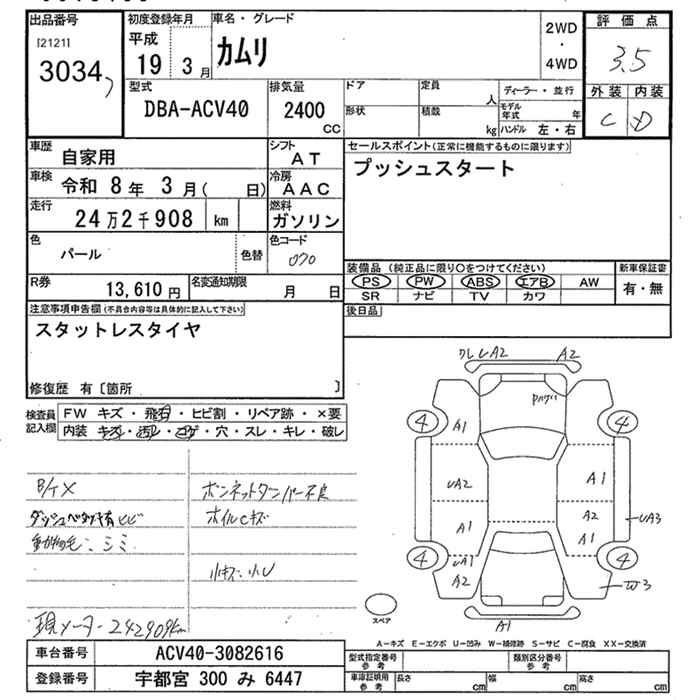 出品番号
[2121]
3034
初度登録年月
平成
19 3月
車名・グレード
カムリ
2WD
・
4WD
評価点
3.5
外装 内装
C D
型式
DBA-ACV40
排気量
2400
CC
ドア
定員
人
形状
積載
kg
ディーラー・並行
モデル年式 年
ハンドル 左・右
車歴
自家用
シフト
AT
車検
令和 8年 3月( 日)
冷房
AAC
走行
24万2千908 km
燃料
ガソリン
色
パール
色替
色コード
070
R券
13,610円
名変通知期限
月 日
セールスポイント(正常に機能するものに限ります)
プッシュスタート
装備品 (純正品に限り○をつけてください)
PS PW ABS エアB AW
SR ナビ TV カワ
新車保証書
有・無
後日品
注意事項申告欄(不具合内容等は具体的に記入して下さい)
スタットレスタイヤ
修復歴 有〔箇所 〕
検査員記入欄
FW キズ・飛石・ヒビ割・リペア跡・×要
内装 キズ・汚レ・コゲ・穴・スレ・キレ・破レ
B/T X
ボンネットダンパー不良
ホイルCキズ
動物の毛、シミ
小キズ・小U
現メーター242909km
車台番号
ACV40-3082616
登録番号
宇都宮 300 み 6447
A2
A2
4
A1
4
UA2
A1
A1
A2
UA3
A1
UA1
4
A2
4
W3
A1
スペア
A-キズ E-エクボ U-凹み W-補修跡 S-サビ C-腐食 XX-交換済
型式指定番号
参考
類別区分番号
参考
車庫証明用
参考
長さ cm
幅 cm
高さ cm